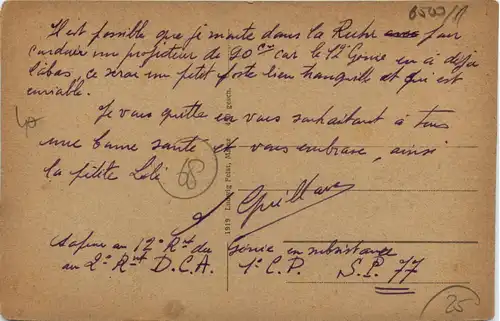 6503/11
Il est possible que je monte dans la Ruhr pour
conduire un projecteur de 90cm car le 12e Génie en a déjà
là bas, ce serai un petit poste bien tranquille et qui est
enviable.
Je vous quitte en vous souhaitant à tous
une bonne santé et vous embrasse, ainsi
la petite Lili
Sapeur au 12e Rnt du Génie en subsistance
au 2e Rnt D.C.A. 1e C.P. S.P. 77
1919 Ludwig Feder, gesch.
68
25